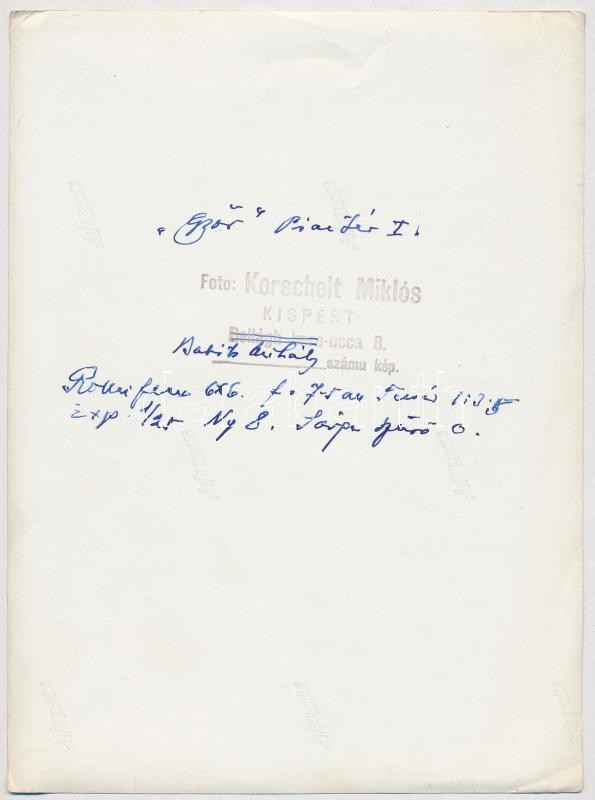 „Győr” Piac tér I.
Foto: Korschelt Miklós
KISPEST
Bellágh Imre-ucca 8.
Babits Mihály
számu kép.
Rolleiflex 6x6. f= 7-5 cm Tessár 1:3,5
Exp. 1/25 Ny 8. Sárga szűrő 0.